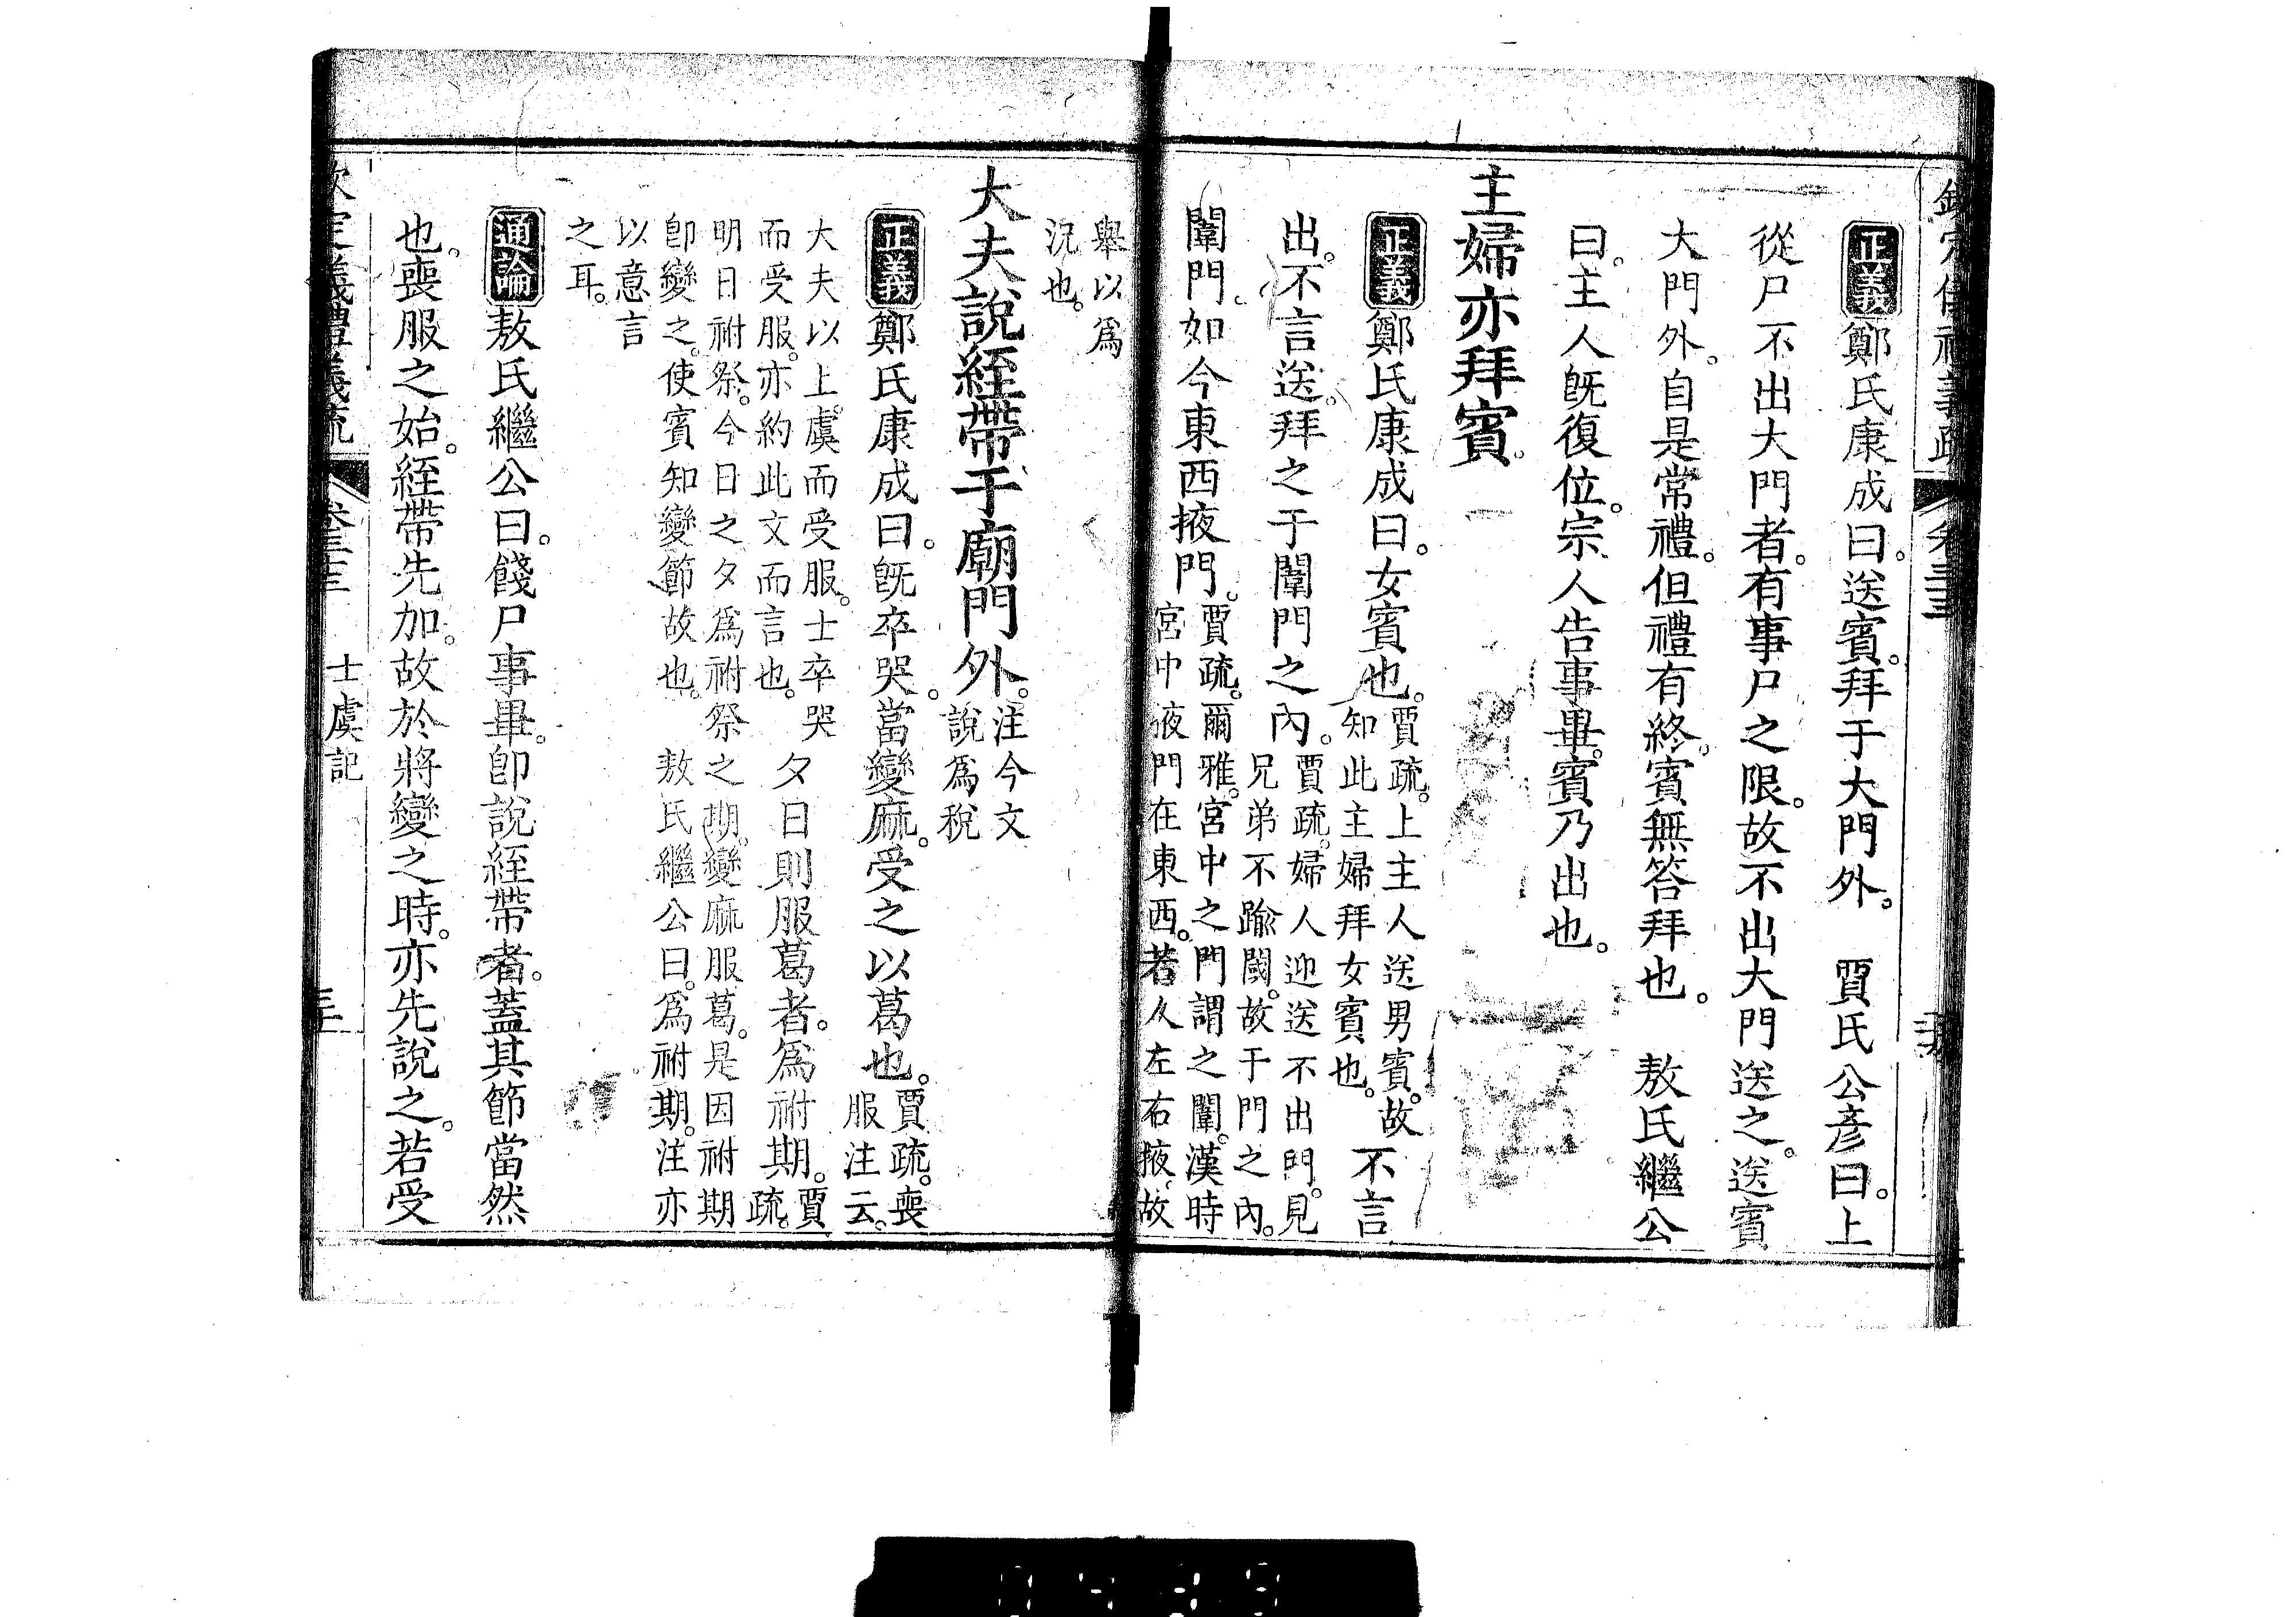 欽定儀禮義疏 卷三十三
正義鄭氏康成曰。送賓。拜于大門外。 賈氏公彥曰。上
從尸不出大門者。有事尸之限。故不出大門送之。送賓
大門外。自是常禮。但禮有終。賓無答拜也。 敖氏繼公
曰。主人旣復位。宗人告事畢。賓乃出也。
主婦亦拜賓。
正義鄭氏康成曰。女賓也。賈疏。上主人送男賓。故
知此主婦拜女賓也。不言
出。不言送。拜之于闈門之內。賈疏。婦人迎送不出門。見
兄弟不踰閾。故于門之內。
闈門。如今東西掖門。賈疏。爾雅。宮中之門謂之闈。漢時
宮中掖門在東西。若人左右掖。故
舉以爲
況也。
大夫說絰帶于廟門外。注今文
說爲稅
正義鄭氏康成曰。旣卒哭。當變麻。受之以葛也。賈疏。喪
服注云。
大夫以上。虞而受服。士卒哭
而受服。亦約此文而言也。夕日則服葛者。爲祔期。賈
疏。
明日祔祭。今日之夕爲祔祭之期。變麻服葛。是因祔期
卽變之。使賓知變節故也。 敖氏繼公曰。爲祔期。注亦
以意言
之耳。
通論敖氏繼公曰。餞尸事畢。卽說絰帶者。蓋其節當然
也。喪服之始。絰帶先加。故於將變之時。亦先說之。若受
欽定儀禮義疏 卷三十三 士虞記